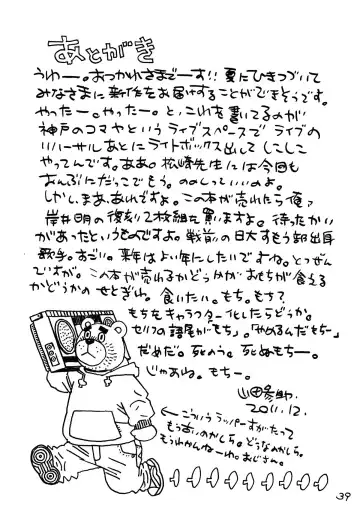 あとがき
うわー。おつかれさまでーす!! 夏にひきつづいて
みなさまに新作をお届けすることができそうです。
やったー。やったー。と、これを書いてるのが
神戸のコマヤというライブスペースで ライブの
リハーサルあとにライトボックス出して しこしこ
やってんです。ああ。松崎先生には今回も
おんぶにだっこでもう。
しかしまあ、あれですよ。この本が売れたら俺ァ
岸井明の復刻2枚組を買いますよ。待ったかい
があったというものですよ。戦前の日大すもう部出身
歌手。すごい。来年はよい年にしたいですね。とりあえず
ですが。この本が売れるかどうかが おもちが食える
かどうかの せとぎわ。食いたい。もち。もち?
もちをキャラクター化したらどうか。
セリフの語尾が「もち」。「やめるんだもちー」
だめだ。死のう。死ぬもちー。
じゃあね。もちー。
2011.12.
←こういうラッパーすがたって
もう古いのかしら。どうなのかしら。
もうわかんねーわ。おじさん。
39